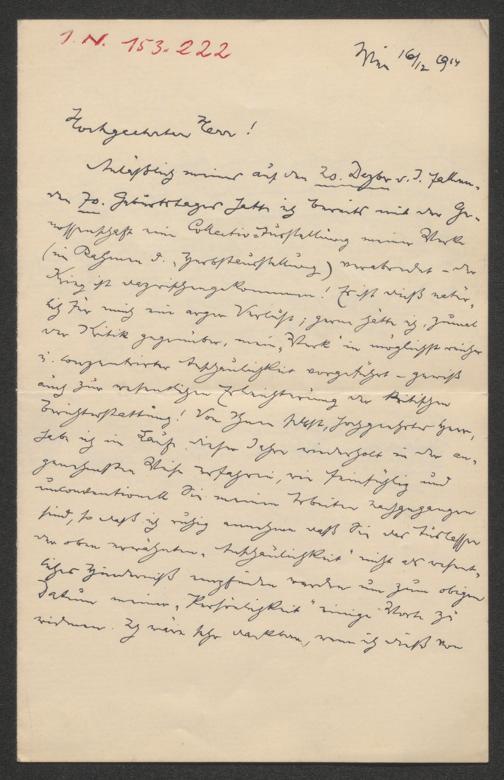 I. N. 153.222
Wien 16/12 1914
Hochgeehrter Herr!
Anläßlich meines auf den 20. Dezbr d. J. fallen-
den 70. Geburtstages hatte ich bereits mit der Ge-
nossenschaft eine Collectiv-Ausstellung meiner Werke
(im Rahmen d. „Herbstausstellung“) verabredet – der
Krieg ist dazwischengekommen! Es ist dieß natür-
lich für mich ein arger Verlust; gerne hätte ich, zumal
der Kritik gegenüber, mein „Werk“ in möglichst reicher
u. conzentrirter Anschaulichkeit vorgeführt – gewiß
auch zur wesentlichen Erleichterung der kritischen
Berichterstattung! Von Ihnen selbst, hochgeehrter Herr,
habe ich im Laufe dieser Jahre wiederholt in der an-
genehmsten Weise erfahren, wie feinfühlig und
unconventionell Sie meinen Arbeiten nachgegangen
sind, so daß ich ruhig annehmen daß Sie das
der oben erwähnten „Anschaulichkeit“ nicht als wesent-
liches Hinderniß empfinden werden um zum obigen
Datum meiner „Persönlichkeit“ einige Worte zu
widmen. Ich wäre sehr dankbar, wenn ich dieß von